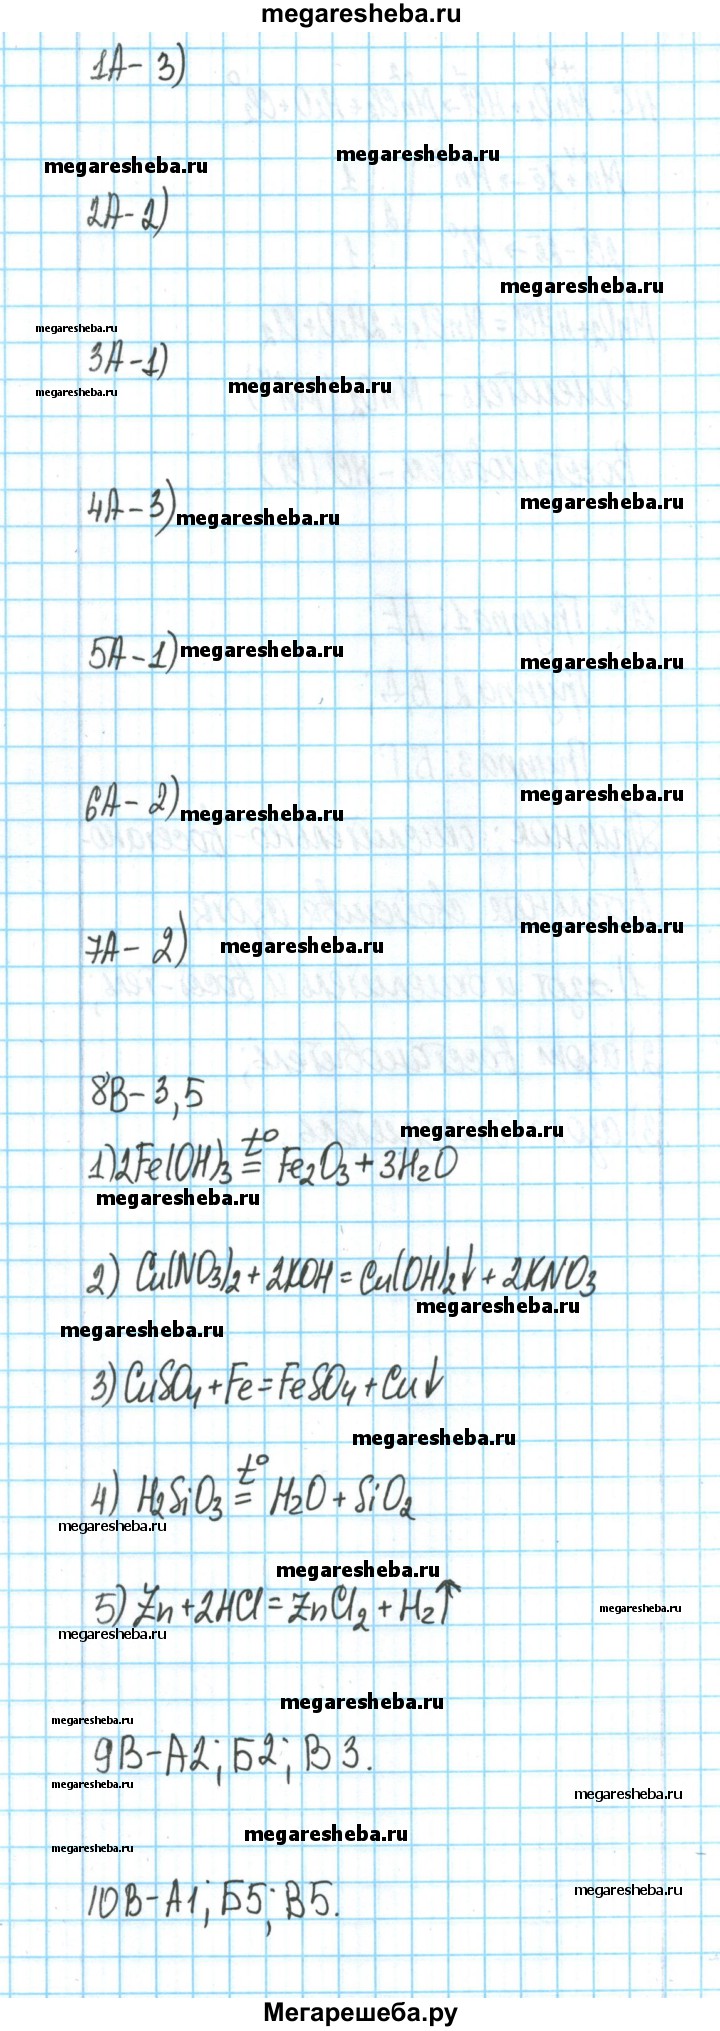 megaresheba.ru
1А - 3)
megaresheba.ru
megaresheba.ru
2А - 2)
megaresheba.ru
megaresheba.ru
3А - 1)
megaresheba.ru
megaresheba.ru
4А - 3)
megaresheba.ru
megaresheba.ru
5А - 1)
megaresheba.ru
megaresheba.ru
6А - 2)
megaresheba.ru
megaresheba.ru
7А - 2)
megaresheba.ru
megaresheba.ru
8В - 3,5
megaresheba.ru
1) 2Fe(OH)3 =t° Fe2O3 + 3H2O
megaresheba.ru
2) Cu(NO3)2 + 2KOH = Cu(OH)2↓ + 2KNO3
megaresheba.ru
megaresheba.ru
3) CuSO4 + Fe = FeSO4 + Cu↓
megaresheba.ru
4) H2SiO3 =t° H2O + SiO2
megaresheba.ru
megaresheba.ru
5) Zn + 2HCl = ZnCl2 + H2↑
megaresheba.ru
megaresheba.ru
megaresheba.ru
megaresheba.ru
9В - А2; Б2; В3.
megaresheba.ru
megaresheba.ru
megaresheba.ru
megaresheba.ru
10В - А1; Б5; В5.
megaresheba.ru
Мегарешеба.ру